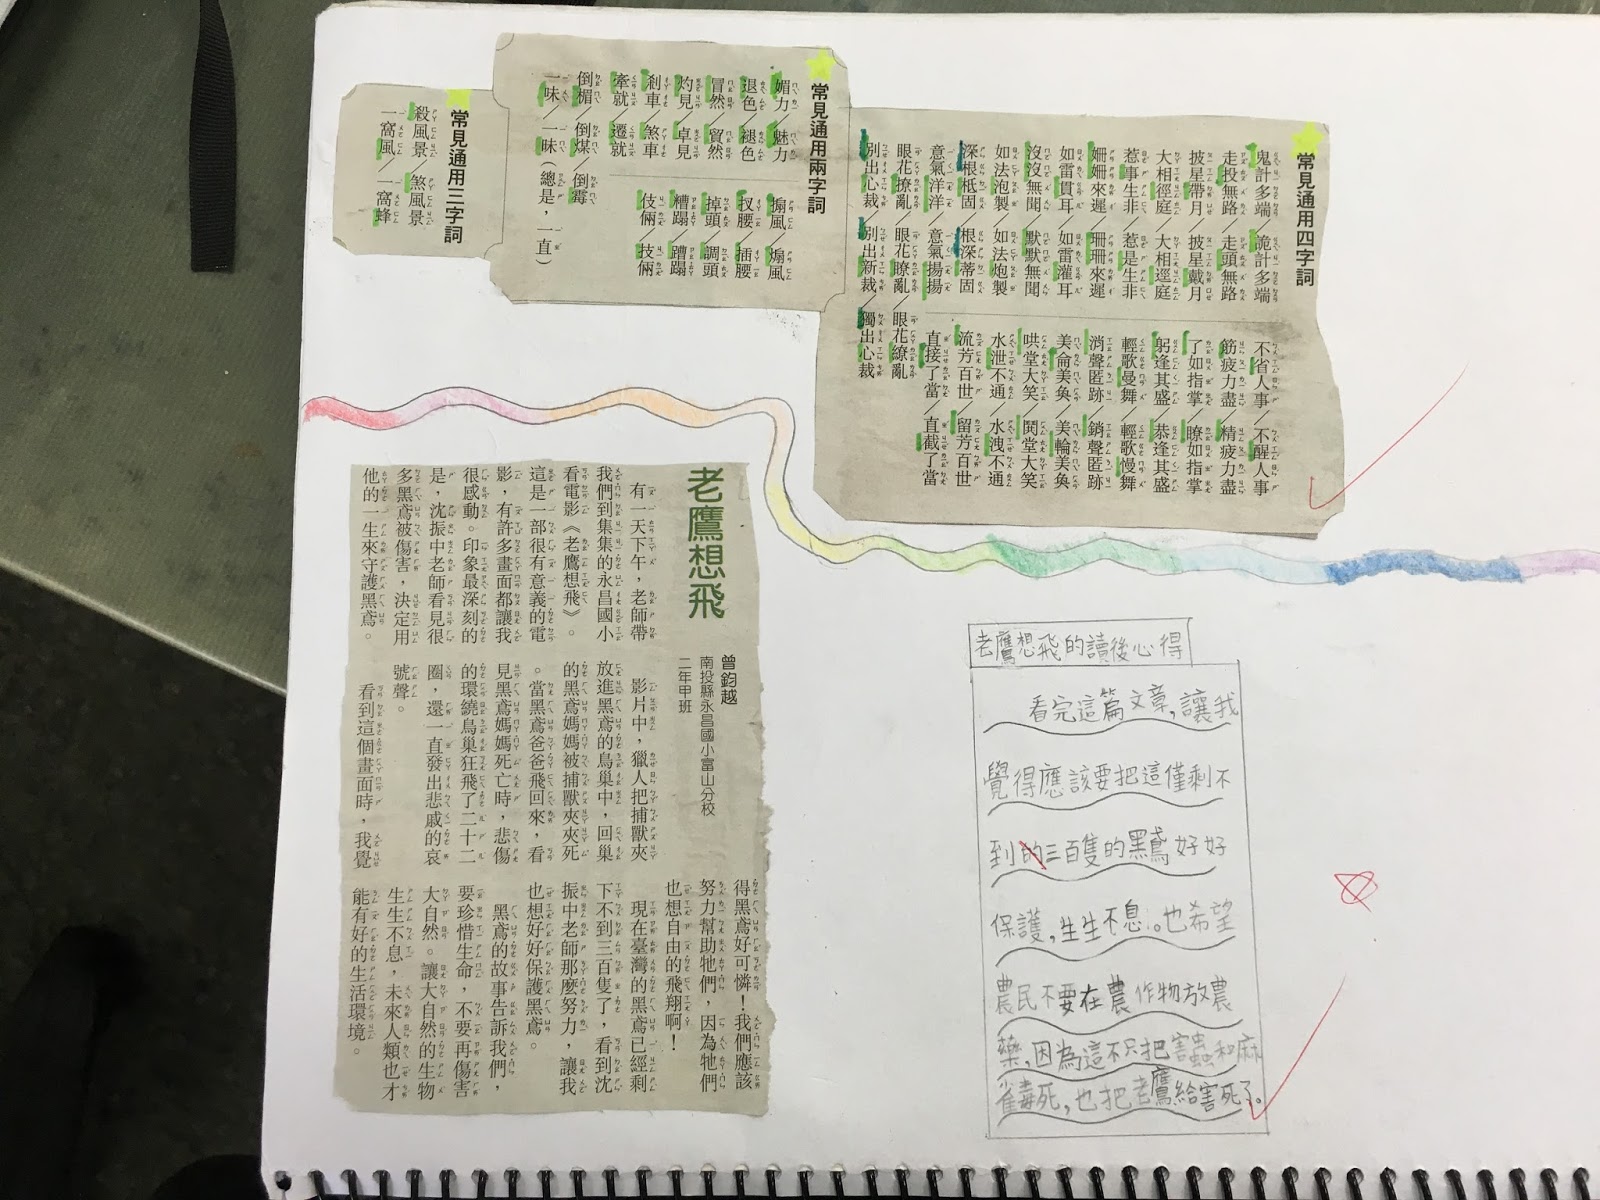 常見通用四字詞
鬼計多端／詭計多端
走投無路／走頭無路
披星帶月／披星戴月
大相徑庭／大相逕庭
惹事生非／惹是生非
姍姍來遲／珊珊來遲
如雷貫耳／如雷灌耳
沒沒無聞／默默無聞
如法泡製／如法炮製
深根柢固／根深蒂固
意氣洋洋／意氣揚揚
眼花撩亂／眼花瞭亂／眼花繚亂
別出心裁／別出新裁／獨出心裁
不省人事／不醒人事
筋疲力盡／精疲力盡
了如指掌／瞭如指掌
躬逢其盛／恭逢其盛
輕歌曼舞／輕歌慢舞
消聲匿跡／銷聲匿跡
美侖美奐／美輪美奐
哄堂大笑／鬨堂大笑
水泄不通／水洩不通
流芳百世／留芳百世
直接了當／直截了當
常見通用兩字詞
媚力／魅力
退色／褪色
冒然／貿然
灼見／卓見
剎車／煞車
牽就／遷就
倒楣／倒煤／倒霉
一味／一昧（總是，一直）
搧風／煽風
扠腰／插腰
掉頭／調頭
糟蹋／蹧蹋
伎倆／技倆
常見通用三字詞
殺風景／煞風景
一窩風／一窩蜂
老鷹想飛
曾鈞越
南投縣永昌國小富山分校
二年甲班
有一天下午，老師帶
我們到集集的永昌國小
看電影《老鷹想飛》。
這是一部很有意義的電
影，有許多畫面都讓我
很感動。印象最深刻的
是，沈振中老師看見很
多黑鳶被傷害，決定用
他的一生來守護黑鳶。
影片中，獵人把捕獸夾
放進黑鳶的鳥巢中，回巢
的黑鳶媽媽被捕獸夾夾死
。當黑鳶爸爸飛回來，看
見黑鳶媽媽死亡時，悲傷
的環繞鳥巢狂飛了二十二
圈，還一直發出悲戚的哀
號聲。
看到這個畫面時，我覺
得黑鳶好可憐！我們應該
努力幫助牠們，因為牠們
也想自由的飛翔啊！
現在臺灣的黑鳶已經剩
下不到三百隻了，看到沈
振中老師那麼努力，讓我
也想好好保護黑鳶。
黑鳶的故事告訴我們，
要珍惜生命，不要再傷害
大自然。讓大自然的生物
生生不息，未來人類也才
能有好的生活環境。
老鷹想飛的讀後心得
看完這篇文章，讓我
覺得應該要把這僅剩不
到的三百隻的黑鳶好好
保護，生生不息。也希望
農民不要在農作物放農
藥，因為這不只把害蟲和麻
雀毒死，也把老鷹給害死了。